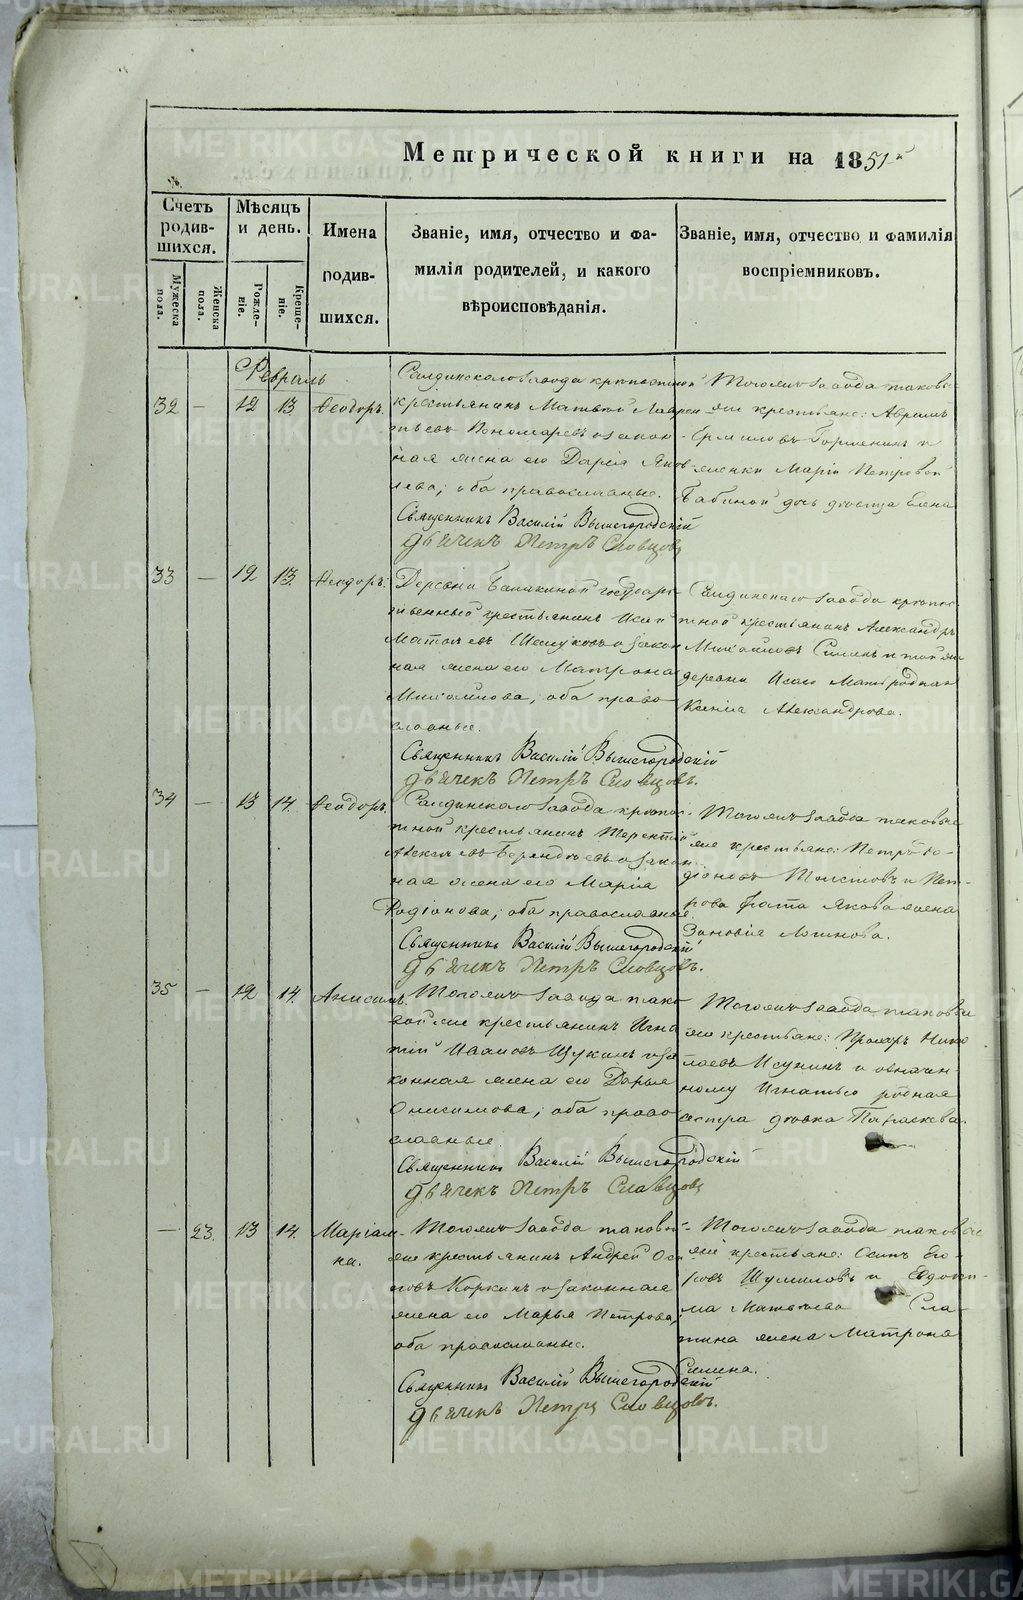 Метрической книги на 1851й
Счетъ родив-шихся.
Мѣсяцъ и день.
Имена родив-шихся.
Званіе, имя, отчество и фа-
милія родителей, и какого
вѣроисповѣданія.
Званіе, имя, отчество и фамилія
воспріемниковъ.
Мужеска пола.
Женска пола.
Рожде-ніе.
Креще-ніе.
Февраль
32 — 12 13 Ѳеодоръ.
Салдинскаго завода крѣпостной
крестьянинъ Матвей Лаврен
тьевъ Пономаревъ и закон-
ная жена его Дарія Яков
лева; оба православные.
Священникъ Василій Вышегородскій
Дьячекъ Петръ Словцовъ
Тогожъ завода таковые
же крестьяне: Аврамъ
Ермиловъ и
женки Маріи Петровой
Бабиной дочь девица Елена
33 — 12 13. Ѳеодоръ.
Деревни Балакиной государс
твенный крестьянинъ Исай
и закон
ная жена его Матрона
Михайлова; оба право
славные.
Священникъ Василій Вышегородскій
Дьячекъ Петръ Словцовъ.
Салдинскаго завода крѣпос
тной крестьянинъ Александръ
Михайловъ и той же
деревни
Ксенія Александрова.
34 — 13 14 Ѳеодоръ.
Салдинскаго завода крѣпос
тной крестьянинъ Терентій
Алексеевъ и закон
ная жена его Марія
Родіонова; оба православные.
Священникъ Василій Вышегородскій
Дьячекъ Петръ Словцовъ.
Тогожъ завода таковые
же крестьяне: Петръ Ро-
діоновъ Толстовъ и Пет-
рова брата Якова жена
Зиновія Логинова.
35 — 12 14. Анисимъ.
Тогожъ завода тако
вой же крестьянинъ Игна
тій Ивановъ Щукинъ и за
конная жена его Дарья
Онисимова; оба право
славные.
Священникъ Василій Вышегородскій
Дьячекъ Петръ Словцовъ
Тогожъ завода таковые
же крестьяне: Нико
лаевъ Исунинъ и означен-
ному Игнатью родная
сестра девка Параскева.
— 23. 13 14. Маріам-
на.
Тогожъ завода таковой
же крестьянинъ Андрей Оси
повъ Коркинъ и законная
жена его Марья Петрова;
оба православные.
Священникъ Василій Вышегородскій
Дьячекъ Петръ Словцовъ.
Тогожъ завода таковые
же крестьяне: Осипъ Его-
ровъ Шумиловъ и Евдоки-
ма Матвеева Сла-
тина жена Матрона
Силина.